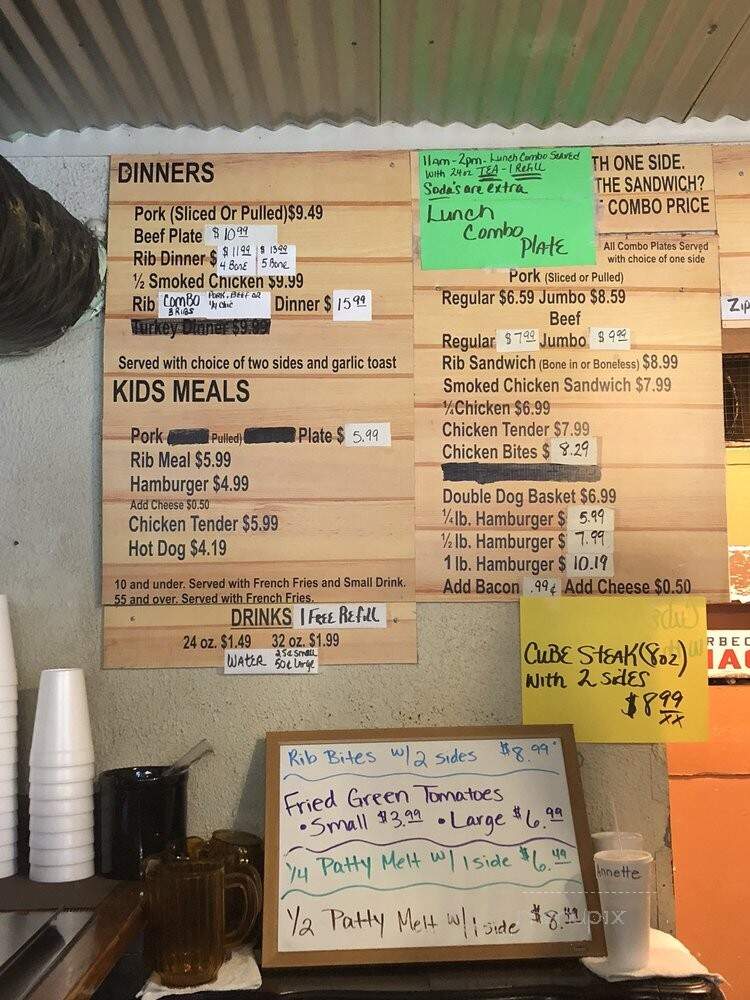 DINNERS
Pork (Sliced Or Pulled)$9.49
Beef Plate $10.99
Rib Dinner $ $11.99 4 Bone $13.99 5 Bone
½ Smoked Chicken $9.99
Rib Combo 3 RIBS PORK, BEEF OR ¼ Chic Dinner $15.99
Turkey Dinner $9.99
Served with choice of two sides and garlic toast
KIDS MEALS
Pork Pulled) Plate $ 5.99
Rib Meal $5.99
Hamburger $4.99
Add Cheese $0.50
Chicken Tender $5.99
Hot Dog $4.19
10 and under. Served with French Fries and Small Drink.
55 and over. Served with French Fries.
DRINKS 1 FREE REfill
24 oz. $1.49 32 oz. $1.99
WATER 25¢ Small
50¢ Large
11am - 2pm - Lunch Combo Served
With 24oz TEA - 1 Refill
Soda's are extra
Lunch
Combo
PlATE
TH ONE SIDE.
THE SANDWICH?
COMBO PRICE
All Combo Plates Served
with choice of one side
Pork (Sliced or Pulled)
Regular $6.59 Jumbo $8.59
Beef
Regular $7.99 Jumbo $9.99
Rib Sandwich (Bone in or Boneless) $8.99
Smoked Chicken Sandwich $7.99
¼Chicken $6.99
Chicken Tender $7.99
Chicken Bites $ 8.29
Double Dog Basket $6.99
¼ lb. Hamburger $ 5.99
½ lb. Hamburger $ 7.99
1 lb. Hamburger $ 10.19
Add Bacon .99¢ Add Cheese $0.50
Zip
CUBE STEAK (8oz)
With 2 sides
$8.99
xx
RBEC
Rib Bites w/2 sides $8.99
Fried Green Tomatoes
• Small $3.99 • Large $6.99
1/4 Patty Melt w/ 1 side $6.49
1/2 Patty Melt w/ 1 side $8.49
Annette